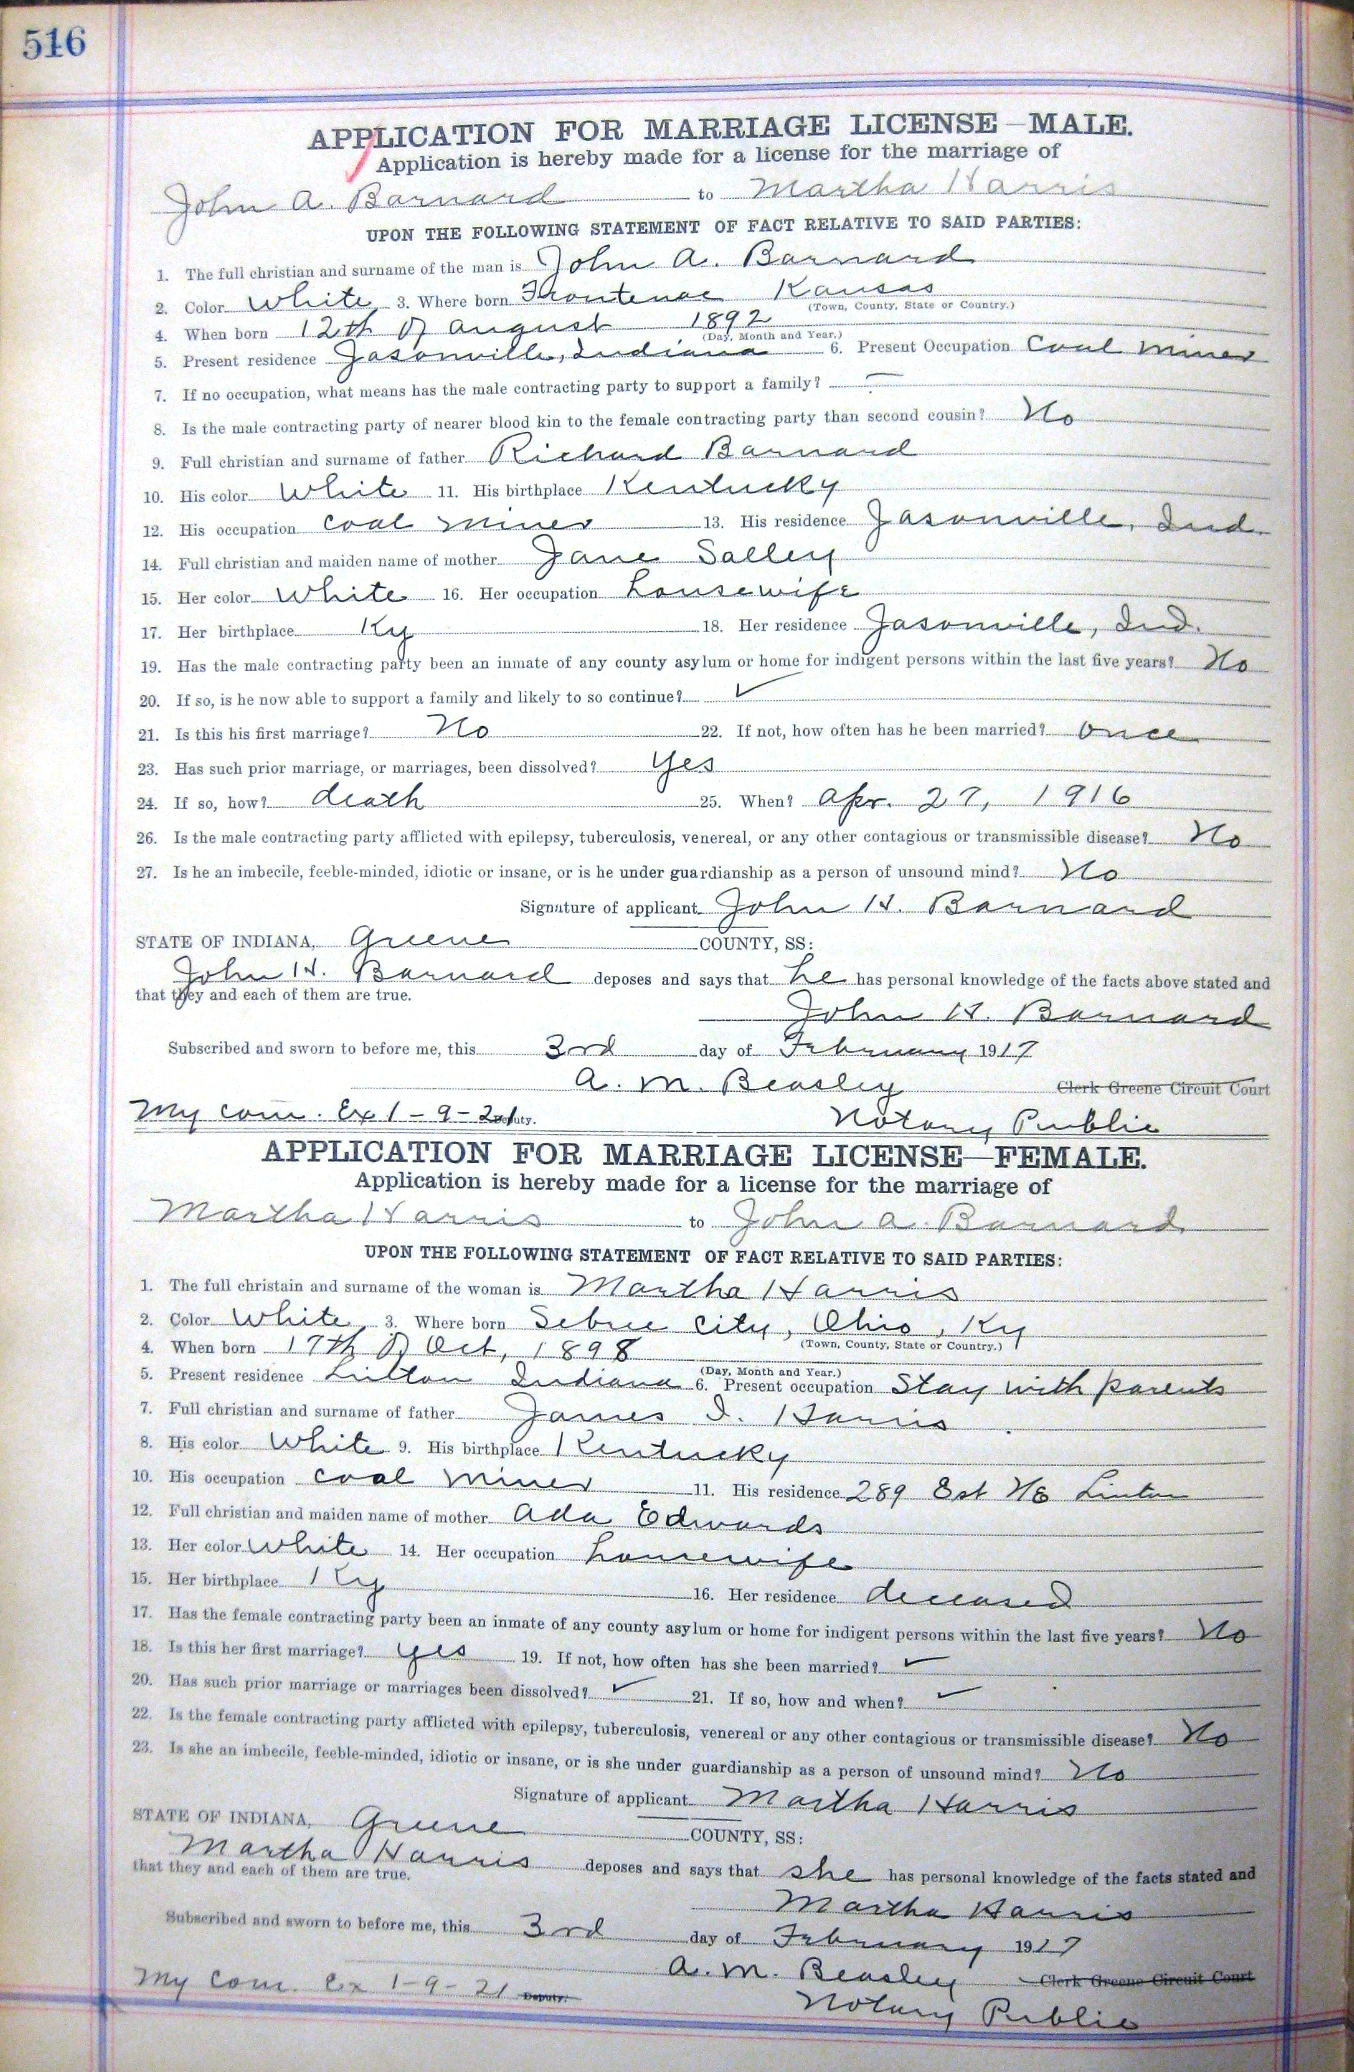 516
APPLICATION FOR MARRIAGE LICENSE—MALE.
Application is hereby made for a license for the marriage of
John A. Barnard to Martha Harris
UPON THE FOLLOWING STATEMENT OF FACT RELATIVE TO SAID PARTIES:
1. The full christian and surname of the man is John A. Barnard
2. Color White 3. Where born Frontenac Kansas
(Town, County, State or Country.)
4. When born 12th of August 1892
(Day, Month and Year.)
5. Present residence Jasonville, Indiana 6. Present Occupation Coal miner
7. If no occupation, what means has the male contracting party to support a family? —
8. Is the male contracting party of nearer blood kin to the female contracting party than second cousin? No
9. Full christian and surname of father Richard Barnard
10. His color White 11. His birthplace Kentucky
12. His occupation coal miner 13. His residence Jasonville, Ind.
14. Full christian and maiden name of mother Jane Salley
15. Her color White 16. Her occupation housewife
17. Her birthplace Ky 18. Her residence Jasonville, Ind.
19. Has the male contracting party been an inmate of any county asylum or home for indigent persons within the last five years? No
20. If so, is he now able to support a family and likely to so continue? ✓
21. Is this his first marriage? No 22. If not, how often has he been married? once
23. Has such prior marriage, or marriages, been dissolved? Yes
24. If so, how? death 25. When? Apr. 27, 1916
26. Is the male contracting party afflicted with epilepsy, tuberculosis, venereal, or any other contagious or transmissible disease? No
27. Is he an imbecile, feeble-minded, idiotic or insane, or is he under guardianship as a person of unsound mind? No
Signature of applicant John H. Barnard
STATE OF INDIANA, Greene COUNTY, SS:
John H. Barnard deposes and says that he has personal knowledge of the facts above stated and
that they and each of them are true.
John H. Barnard
Subscribed and sworn to before me, this 3rd day of February 1917
A. M. Beasley Clerk Greene Circuit Court
My com. Ex 1-9-21 Deputy. Notary Public
APPLICATION FOR MARRIAGE LICENSE—FEMALE.
Application is hereby made for a license for the marriage of
Martha Harris to John A. Barnard
UPON THE FOLLOWING STATEMENT OF FACT RELATIVE TO SAID PARTIES:
1. The full christain and surname of the woman is Martha Harris
2. Color White 3. Where born Sebree City, Ohio, Ky
(Town, County, State or Country.)
4. When born 17th of Oct, 1898
(Day, Month and Year.)
5. Present residence Linton Indiana 6. Present occupation Stay with parents
7. Full christian and surname of father James I. Harris
8. His color White 9. His birthplace Kentucky
10. His occupation coal miner 11. His residence 289 E st NE Linton
12. Full christian and maiden name of mother Ada Edwards
13. Her color White 14. Her occupation housewife
15. Her birthplace Ky 16. Her residence deceased
17. Has the female contracting party been an inmate of any county asylum or home for indigent persons within the last five years? No
18. Is this her first marriage? yes 19. If not, how often has she been married? ✓
20. Has such prior marriage or marriages been dissolved? ✓ 21. If so, how and when? ✓
22. Is the female contracting party afflicted with epilepsy, tuberculosis, venereal or any other contagious or transmissible disease? No
23. Is she an imbecile, feeble-minded, idiotic or insane, or is she under guardianship as a person of unsound mind? No
Signature of applicant Martha Harris
STATE OF INDIANA, Greene COUNTY, SS:
Martha Harris deposes and says that she has personal knowledge of the facts stated and
that they and each of them are true.
Martha Harris
Subscribed and sworn to before me, this 3rd day of February 1917
A. M. Beasley Clerk Greene Circuit Court
My com. Ex 1-9-21 Deputy. Notary Public